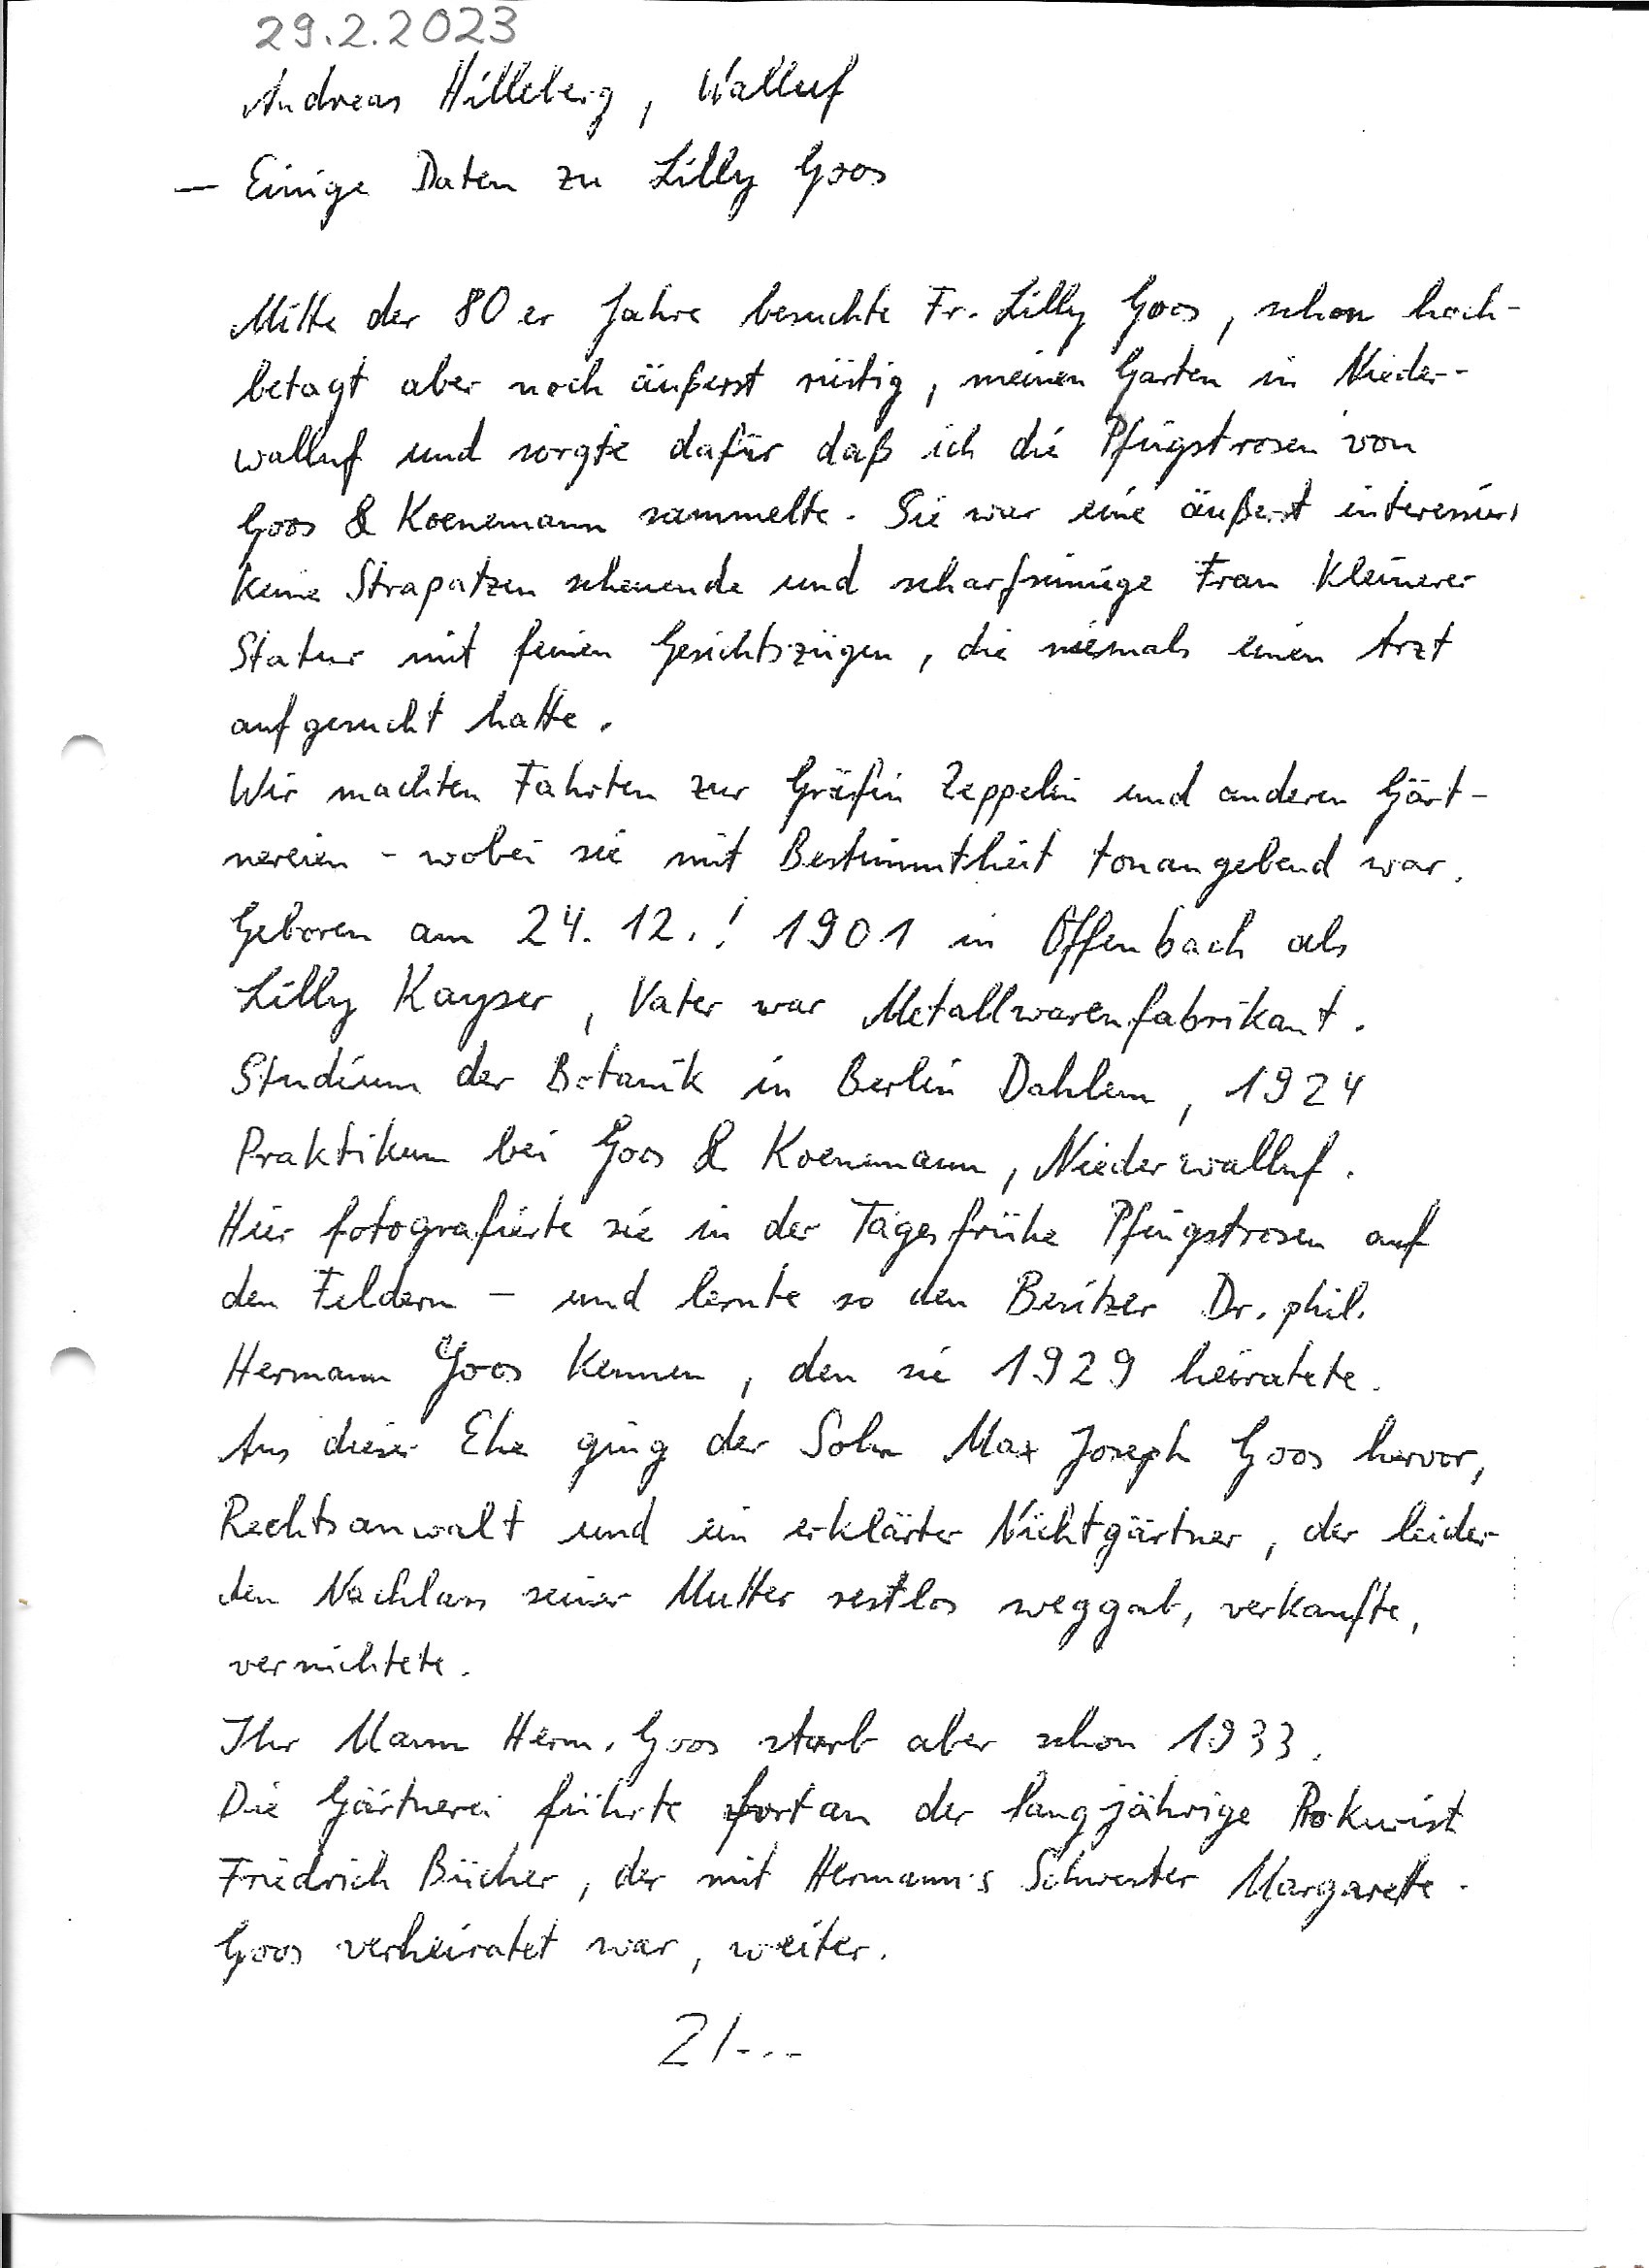 29.2.2023
Andreas Hilleberg, Walluf
— Einige Daten zu Lilly Goos
Mitte der 80er Jahre besuchte Fr. Lilly Goos, schon hoch-
betagt aber noch äußerst rüstig, meinen Garten in Nieder-
walluf und sorgte dafür daß ich die Pfingstrosen von
Goos & Koenemann sammelte. Sie war eine äußerst interessiert
keine Strapatzen scheuende und scharfsinnige Frau kleinerer
Statur mit feinen Gesichtszügen, die niemals einen Arzt
aufgesucht hatte.
Wir machten Fahrten zur Gräfin Zeppelin und anderen Gärt-
nereien - wobei sie mit Bestimmtheit tonangebend war.
Geboren am 24. 12.! 1901 in Offenbach als
Lilly Kayser, Vater war Metallwarenfabrikant.
Studium der Botanik in Berlin Dahlem, 1924
Praktikum bei Goos & Koenemann, Niederwalluf.
Hier fotografierte sie in der Tagesfrühe Pfingstrosen auf
den Feldern - und lernte so den Besitzer Dr. phil.
Hermann Goos kennen, den sie 1929 heiratete.
Aus dieser Ehe ging der Sohn Max Joseph Goos hervor,
Rechtsanwalt und ein erklärter Nichtgärtner, der leider
den Nachlass seiner Mutter restlos weggab, verkaufte,
vernichtete.
Ihr Mann Herm. Goos starb aber schon 1933.
Die Gärtnerei führte fortan der langjährige Prokurist
Friedrich Bücher, der mit Hermann's Schwester Margarette
Goos verheiratet war, weiter.
2/---